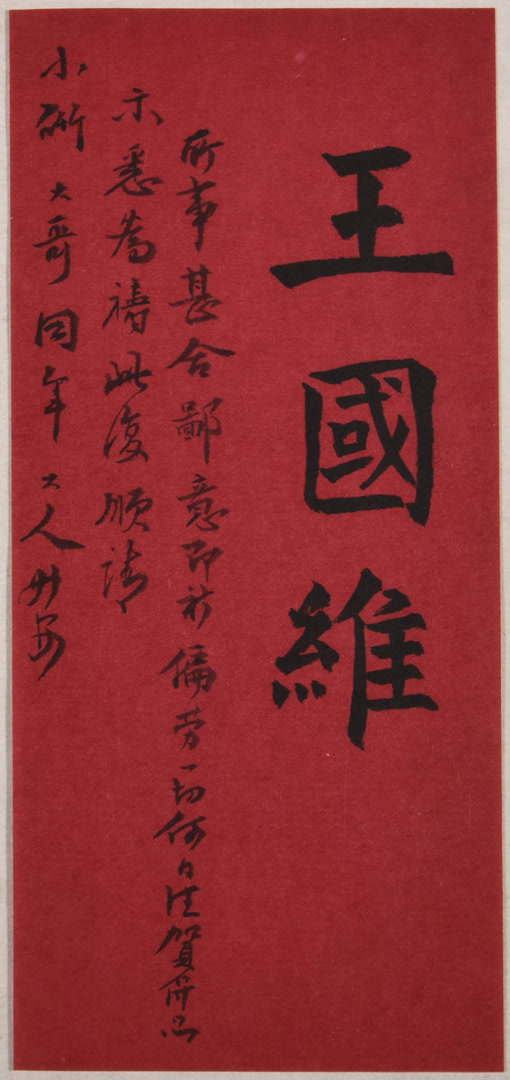 王國維
所事甚合鄙意即祈偏勞一切何日往賀併祈
示悉為禱此復順請
小術大哥同年大人升安